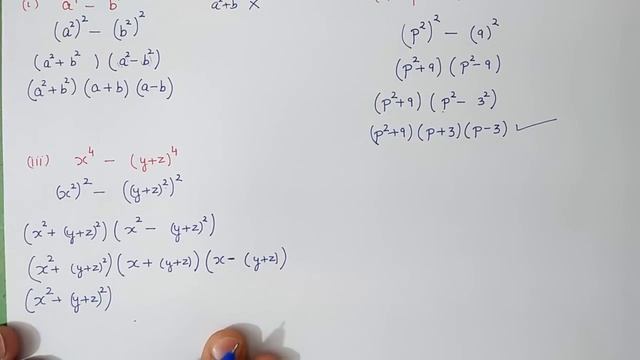 (i) a⁴ - b⁴
(a²)² - (b²)²
(a²+b² ) (a²-b²)
(a²+b²) (a+b) (a-b)
a²+b² X
(p²)² - (9)²
(p²+9) (p²-9)
(p²+9) (p²- 3²)
(p²+9) (p+3) (p-3) ✓
(iii) x⁴ - (y+z)⁴
(x²)² - ((y+z)²)²
(x²+ (y+z)²) (x² - (y+z)²)
(x²+ (y+z)²) (x+(y+z)) (x- (y+z))
(x²+ (y+z)²)